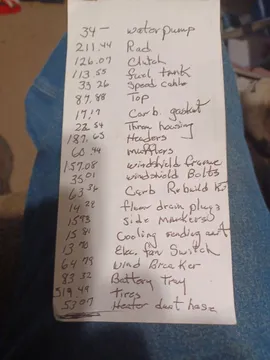 34 — water pump
211.44 Rad
126.07 Clutch
113.55 fuel tank
33.26 Speed cable
87.88 Top
17.17 Carb. gasket
22.54 Throw housing
187.63 Headers
60.44 mufflers
157.08 windshield frame
35.01 windshield Bolts
63.36 Carb Rebuild Kit
14.28 floor drain plugs
15.93 side markers
15.81 Cooling sending unit
13.70 Elec. fan Switch
64.79 Wind Breaker
83.32 Battery Tray
519.49 Tires
53.07 Heater duct hose